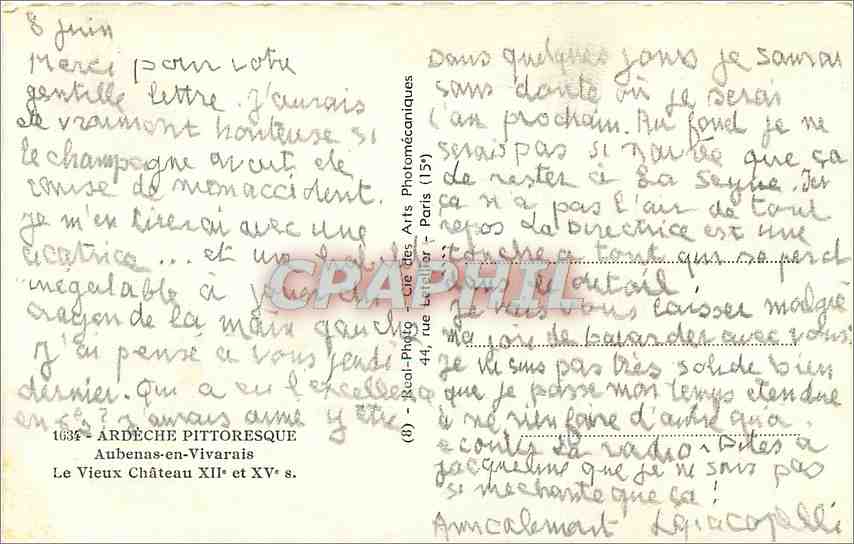 8 juin
Merci pour votre
gentille lettre. J'aurais
été vraiment honteuse si
le champagne avait été
cause de mon accident.
Je m'en tirerai avec une
cicatrice... et un
inégalable à
crayon de la main gauche
J'ai pensé à vous jeudi
dernier. Qui a eu l'excellence
en ? J'aurais aimé y être
1634 - ARDÈCHE PITTORESQUE
Aubenas-en-Vivarais
Le Vieux Château XIIe et XVe s.
(8) - Real-Photo - Cie des Arts Photomécaniques
44, rue Letellier - Paris (15e)
CPAPHIL
Dans quelques jours je saurai
sans doute où je serai
l'an prochain. Au fond je ne
serais pas si navrée que ça
de rester à La Seyne. Ici
ça n'a pas l'air de tout
repos La Directrice est une
touche à tout qui se perd
dans le détail
Je vais vous laisser malgré
ma joie de bavarder avec vous.
Je ne suis pas très solide bien
que je passe mon temps étendue
à ne rien faire d'autre qu'à
écouter la radio. Dites à
Jacqueline que je ne suis pas
si méchante que ça !
Amicalement